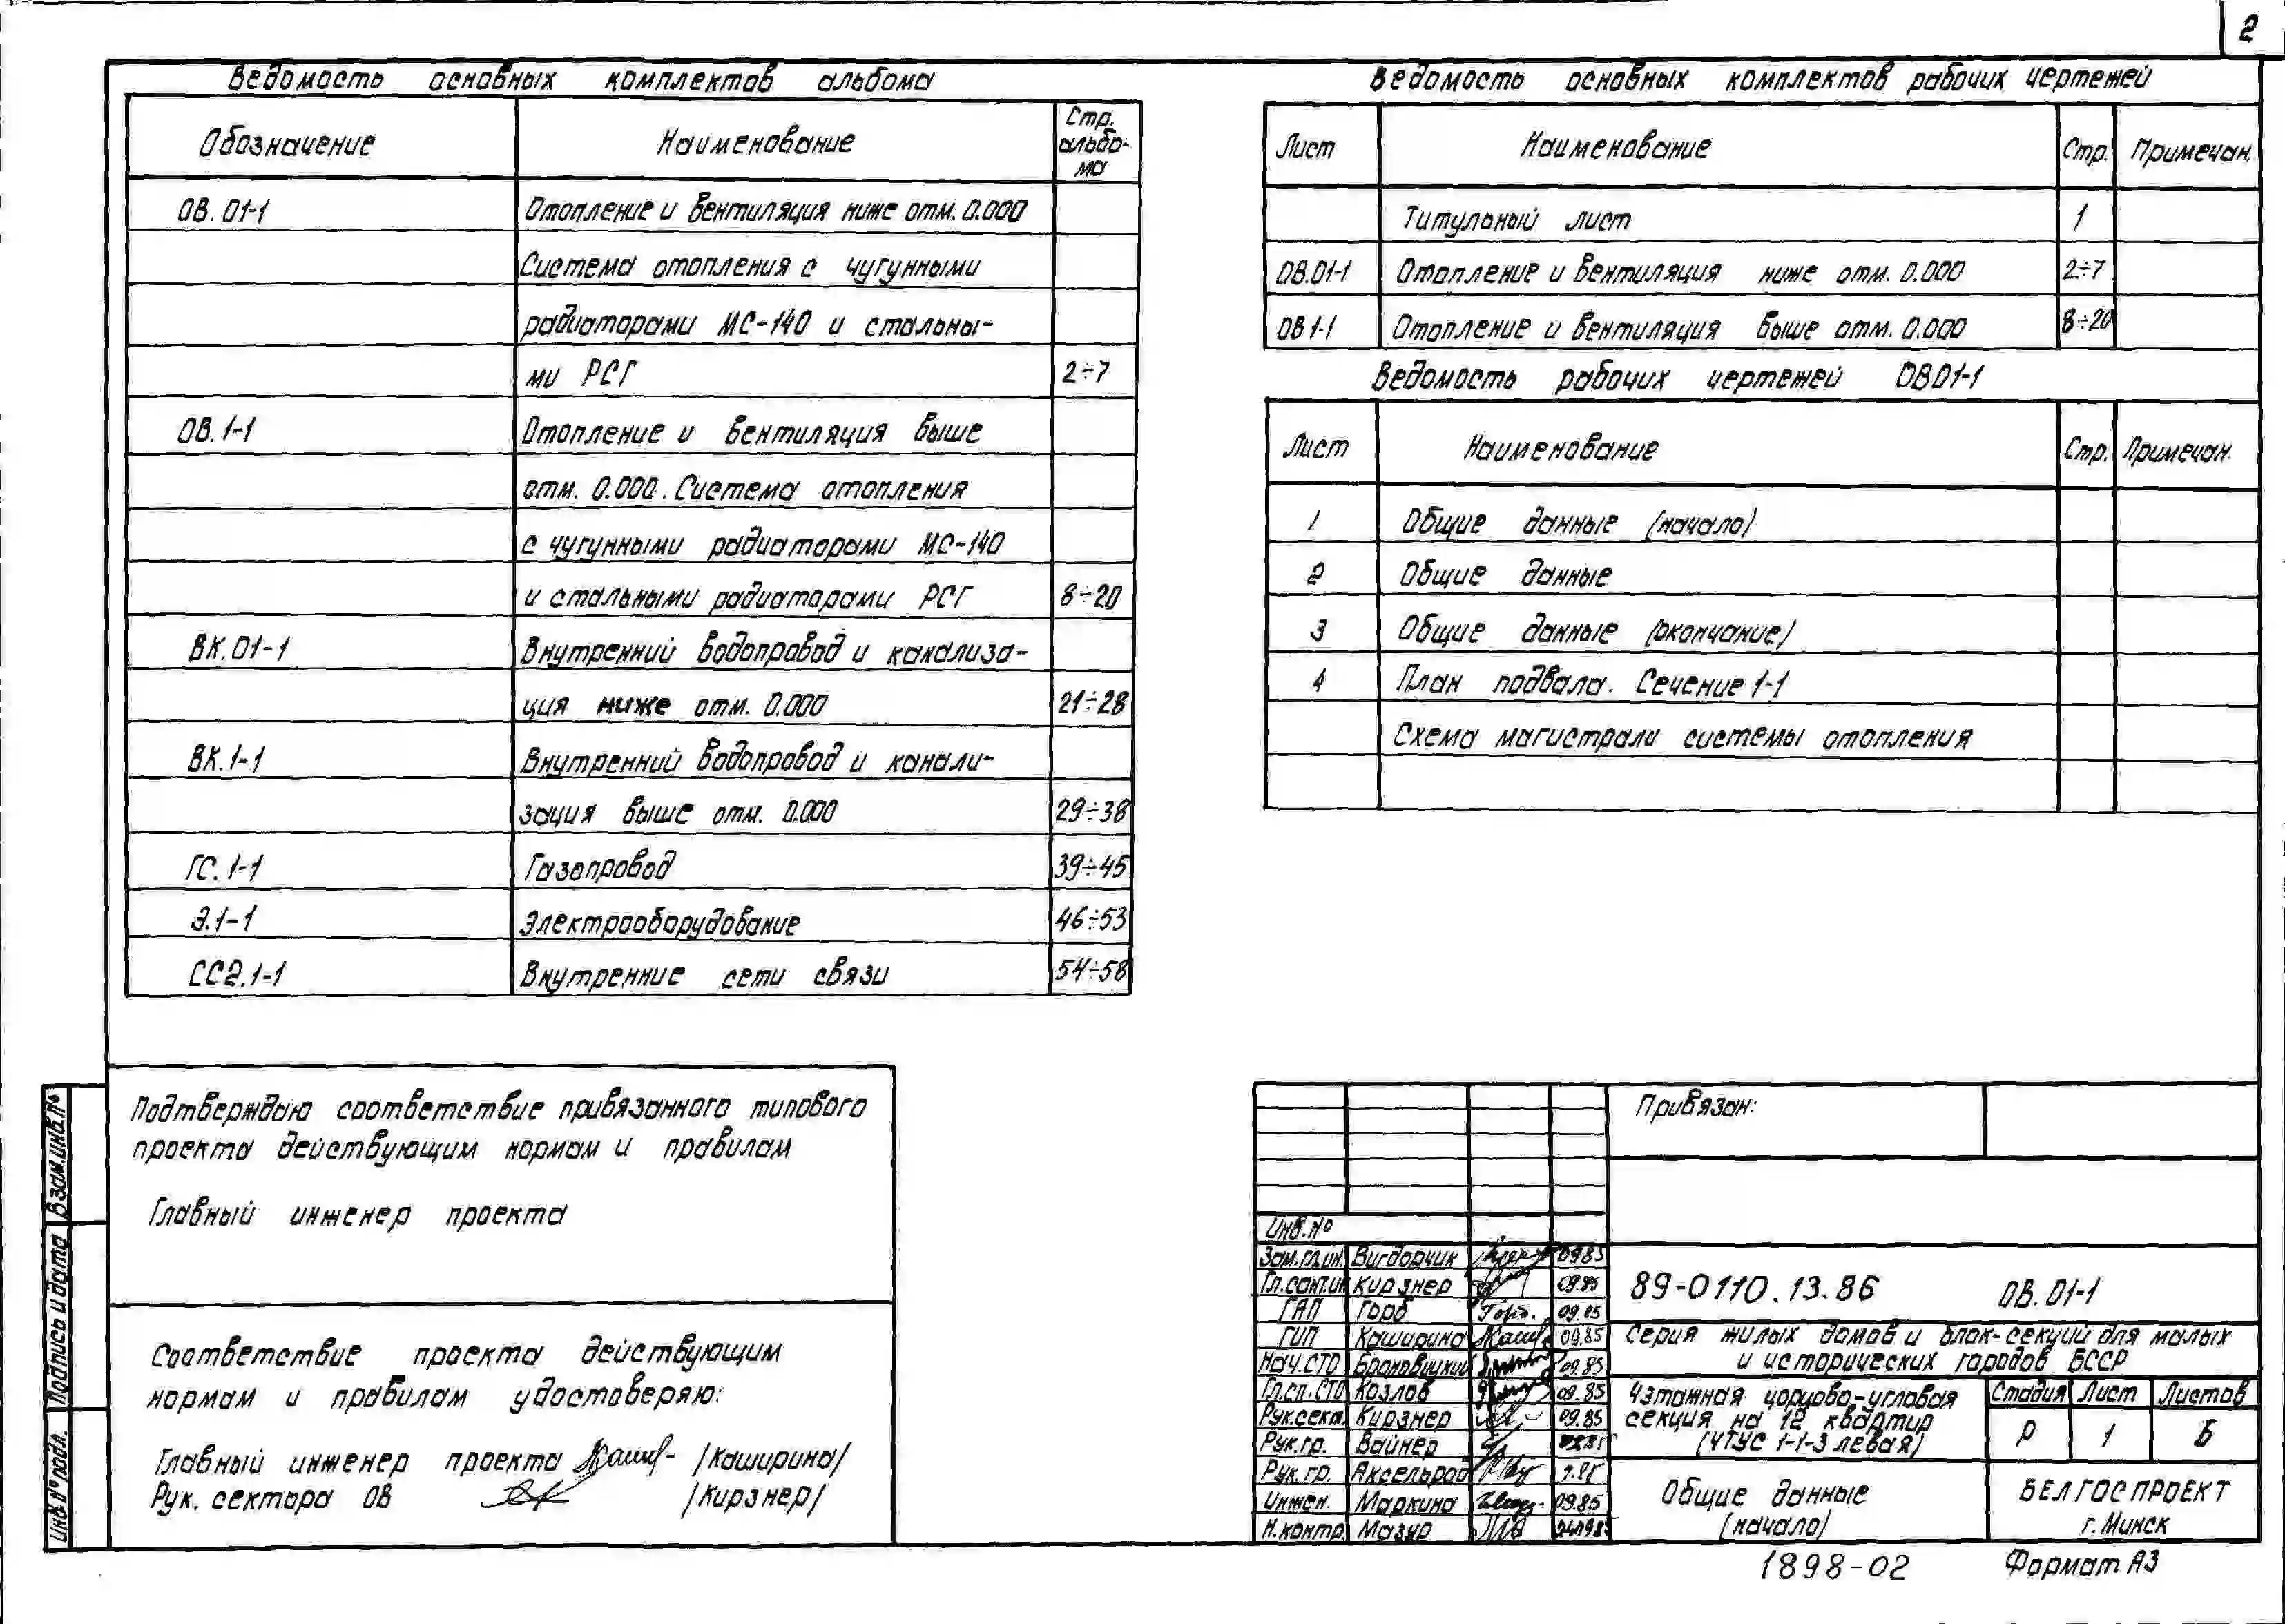 2
Ведомость основных комплектов альбома
Обозначение Наименование Стр. альбо-ма
ОВ. 01-1 Отопление и вентиляция ниже отм. 0.000
Система отопления с чугунными
радиаторами МС-140 и стальны-
ми РСГ 2÷7
ОВ. 1-1 Отопление и вентиляция выше
отм. 0.000. Система отопления
с чугунными радиаторами МС-140
и стальными радиаторами РСГ 8÷20
ВК.01-1 Внутренний водопровод и канализа-
ция ниже отм. 0.000 21÷28
ВК.1-1 Внутренний водопровод и канали-
зация выше отм. 0.000 29÷38
ГС.1-1 Газопровод 39÷45
Э.1-1 Электрооборудование 46÷53
СС2.1-1 Внутренние сети связи 54÷58
Ведомость основных комплектов рабочих чертежей
Лист Наименование Стр. Примечан.
Титульный лист 1
ОВ.01-1 Отопление и вентиляция ниже отм. 0.000 2÷7
ОВ1-1 Отопление и вентиляция выше отм. 0.000 8÷20
Ведомость рабочих чертежей ОВ01-1
Лист Наименование Стр. Примечан.
1 Общие данные (начало)
2 Общие данные
3 Общие данные (окончание)
4 План подвала. Сечение 1-1
Схема магистрали системы отопления
Подтверждаю соответствие привязанного типового
проекта действующим нормам и правилам
Главный инженер проекта
Соответствие проекта действующим
нормам и правилам удостоверяю:
Главный инженер проекта /Каширина/
Рук. сектора ОВ /Кирзнер/
Взам.инв.№
Подпись и дата
Инв.№ подл.
Привязан:
Инв.№
Зам.гл.ин. Вигдорчик 09.85
Гл.сант.ин Кирзнер 09.85
ГАП Горб 09.85
ГИП Каширина 09.85
Нач.СТО Броновицкий 09.85
Гл.сп.СТО Козлов 09.85
Рук.сект. Кирзнер 09.85
Рук.гр. Вайнер
Рук.гр. Аксельрод
Инжен. Маркина 09.85
Н.контр. Мазур
89-0110.13.86 ОВ.01-1
Серия жилых домов и блок-секций для малых
и исторических городов БССР
4этажная торцово-угловая
секция на 12 квартир
(4ТУС 1-1-3 левая)
Стадия Лист Листов
Р 1 6
Общие данные
(начало)
БЕЛГОСПРОЕКТ
г. Минск
1898-02 Формат А3